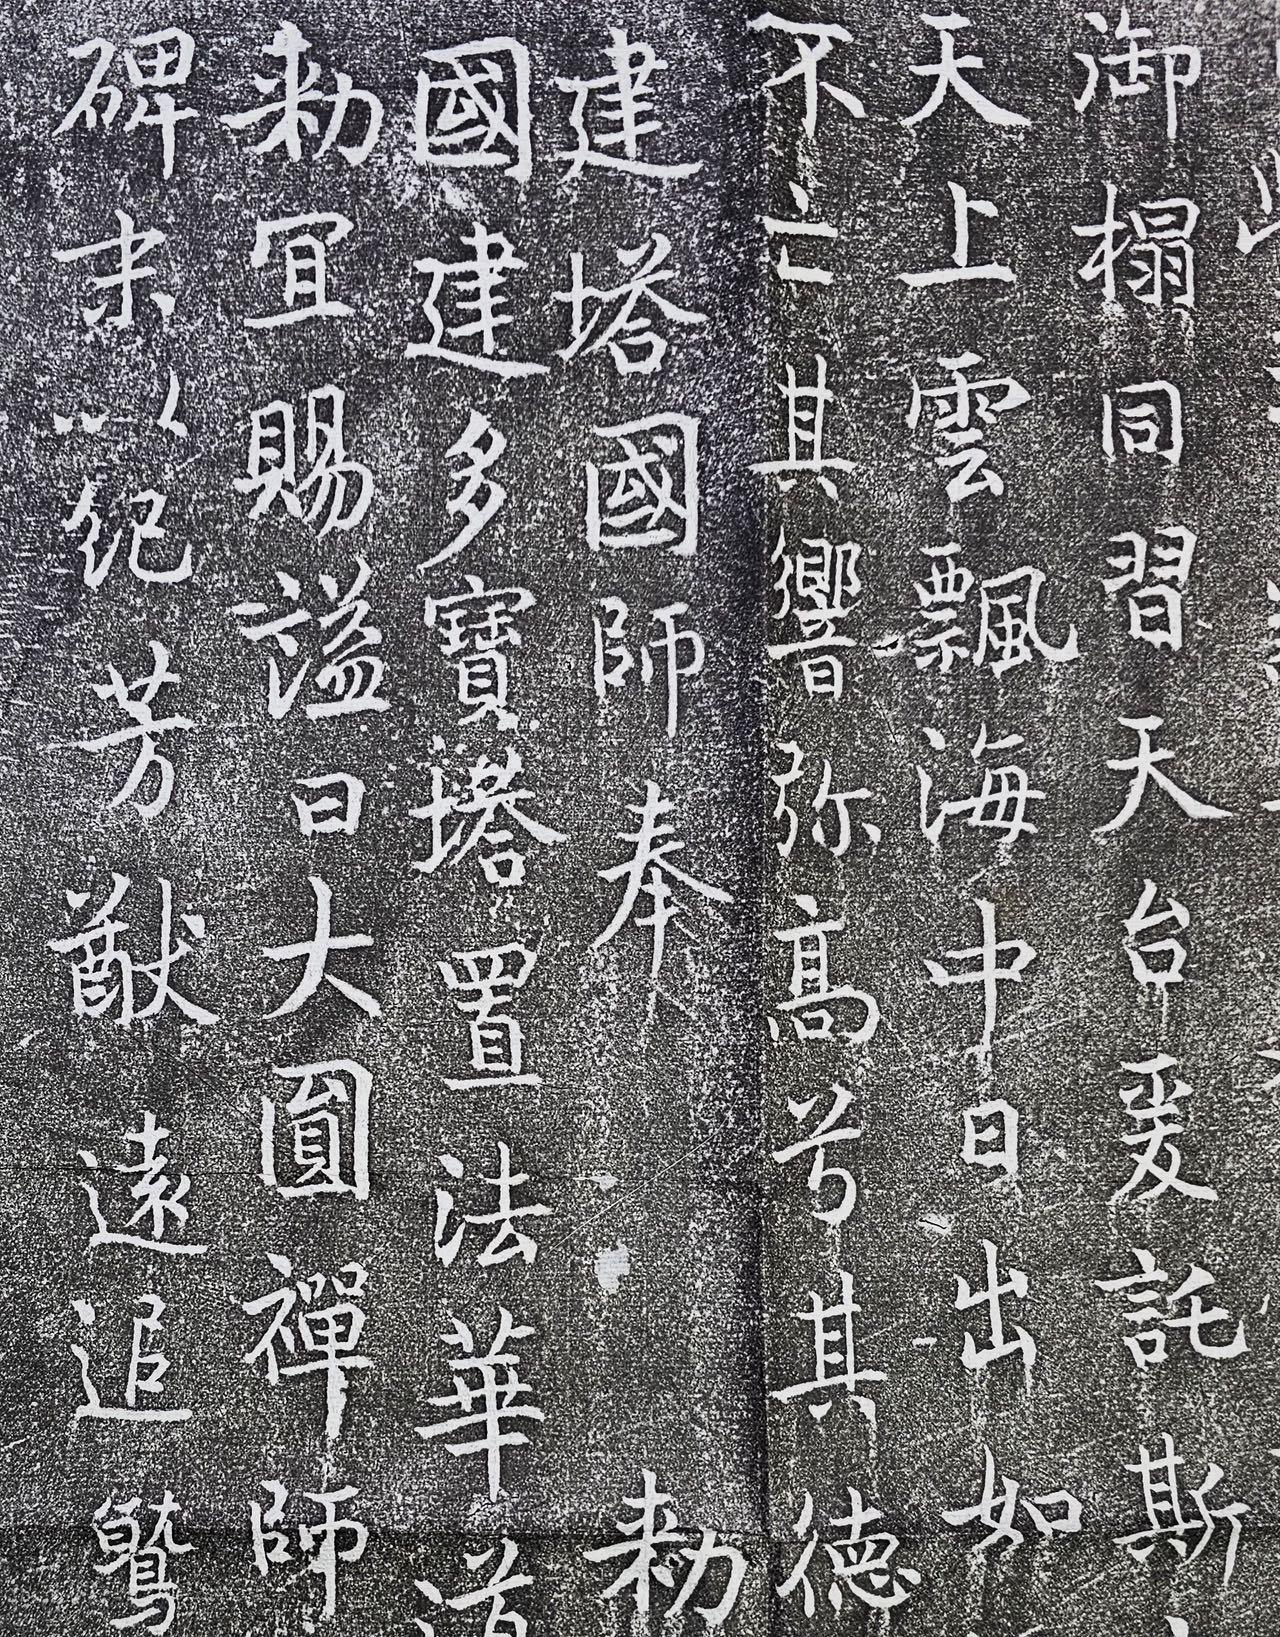 御榻同習天台爰託斯
天上雲飄海中日出如
不亡其響弥高兮其德
建塔國師奉 勅
國建多寶塔置法華道
勅宜賜謚曰大圓禪師
碑未 紀芳猷遠追鷲